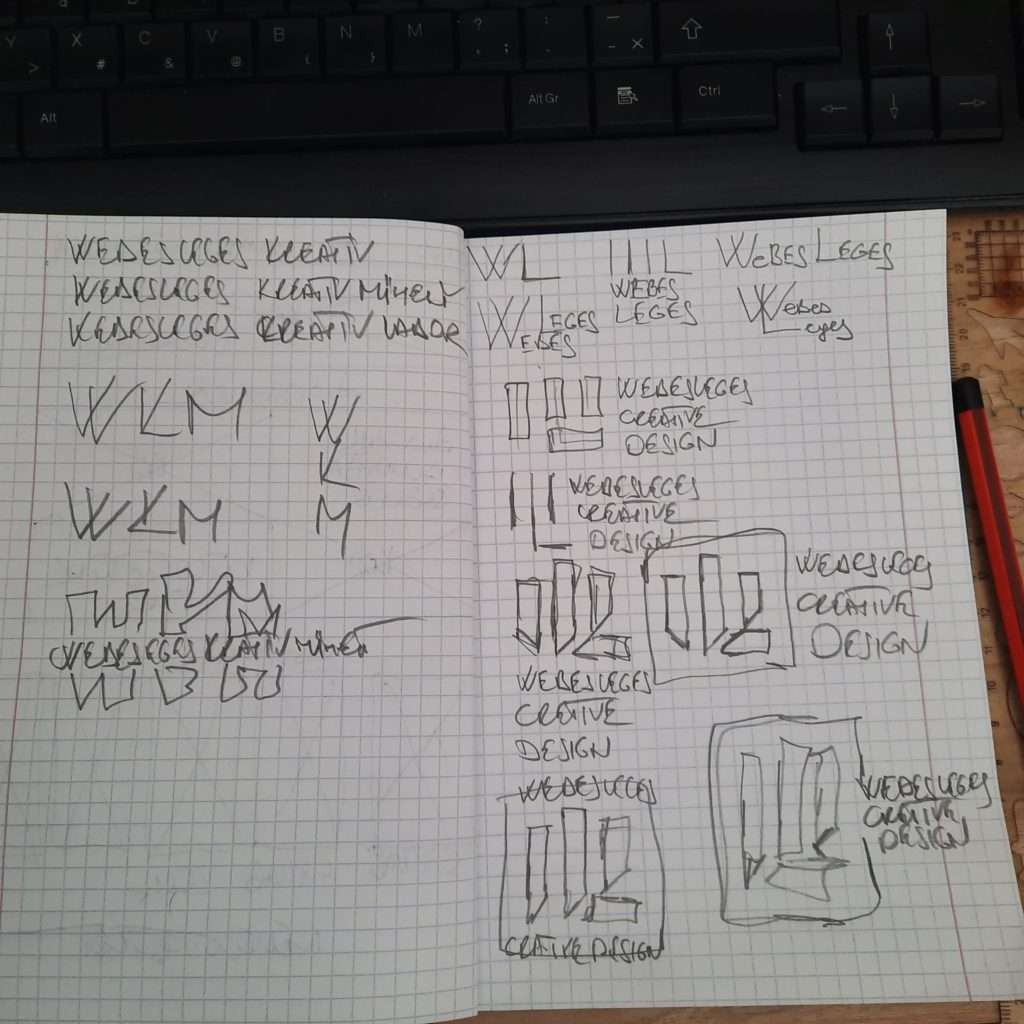 Y X C V B N M ? : _
> # & @ { } , ; . - ×
Alt Alt Gr Ctrl
WEBESLEGES KREATIV
WEBESLEGES KREATIV MŰHELY
WEBESLEGES KREATIV LABOR
WKM
W
K
M
WKM
WEBESLEGES KREATIV MŰHELY
WL
WEBES
LEGES
WEBES LEGES
LEGES
WEBES
Webes
Leges
WEBESLEGES
CREATIVE
DESIGN
WEBESLEGES
CREATIVE
DESIGN
WEBESLEGES
CREATIVE
DESIGN
WEBESLEGES
CREATIVE
DESIGN
WEBESLEGES
CREATIVE DESIGN
WEBESLEGES
CREATIVE
DESIGN